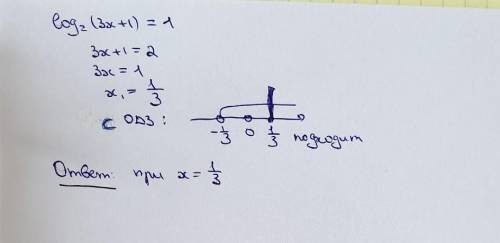 log₂(3x+1) = 1
3x+1 = 2
3x = 1
x₁ = 1/3
с ОДЗ:
-1/3 0 1/3 подходит
Ответ: при x = 1/3